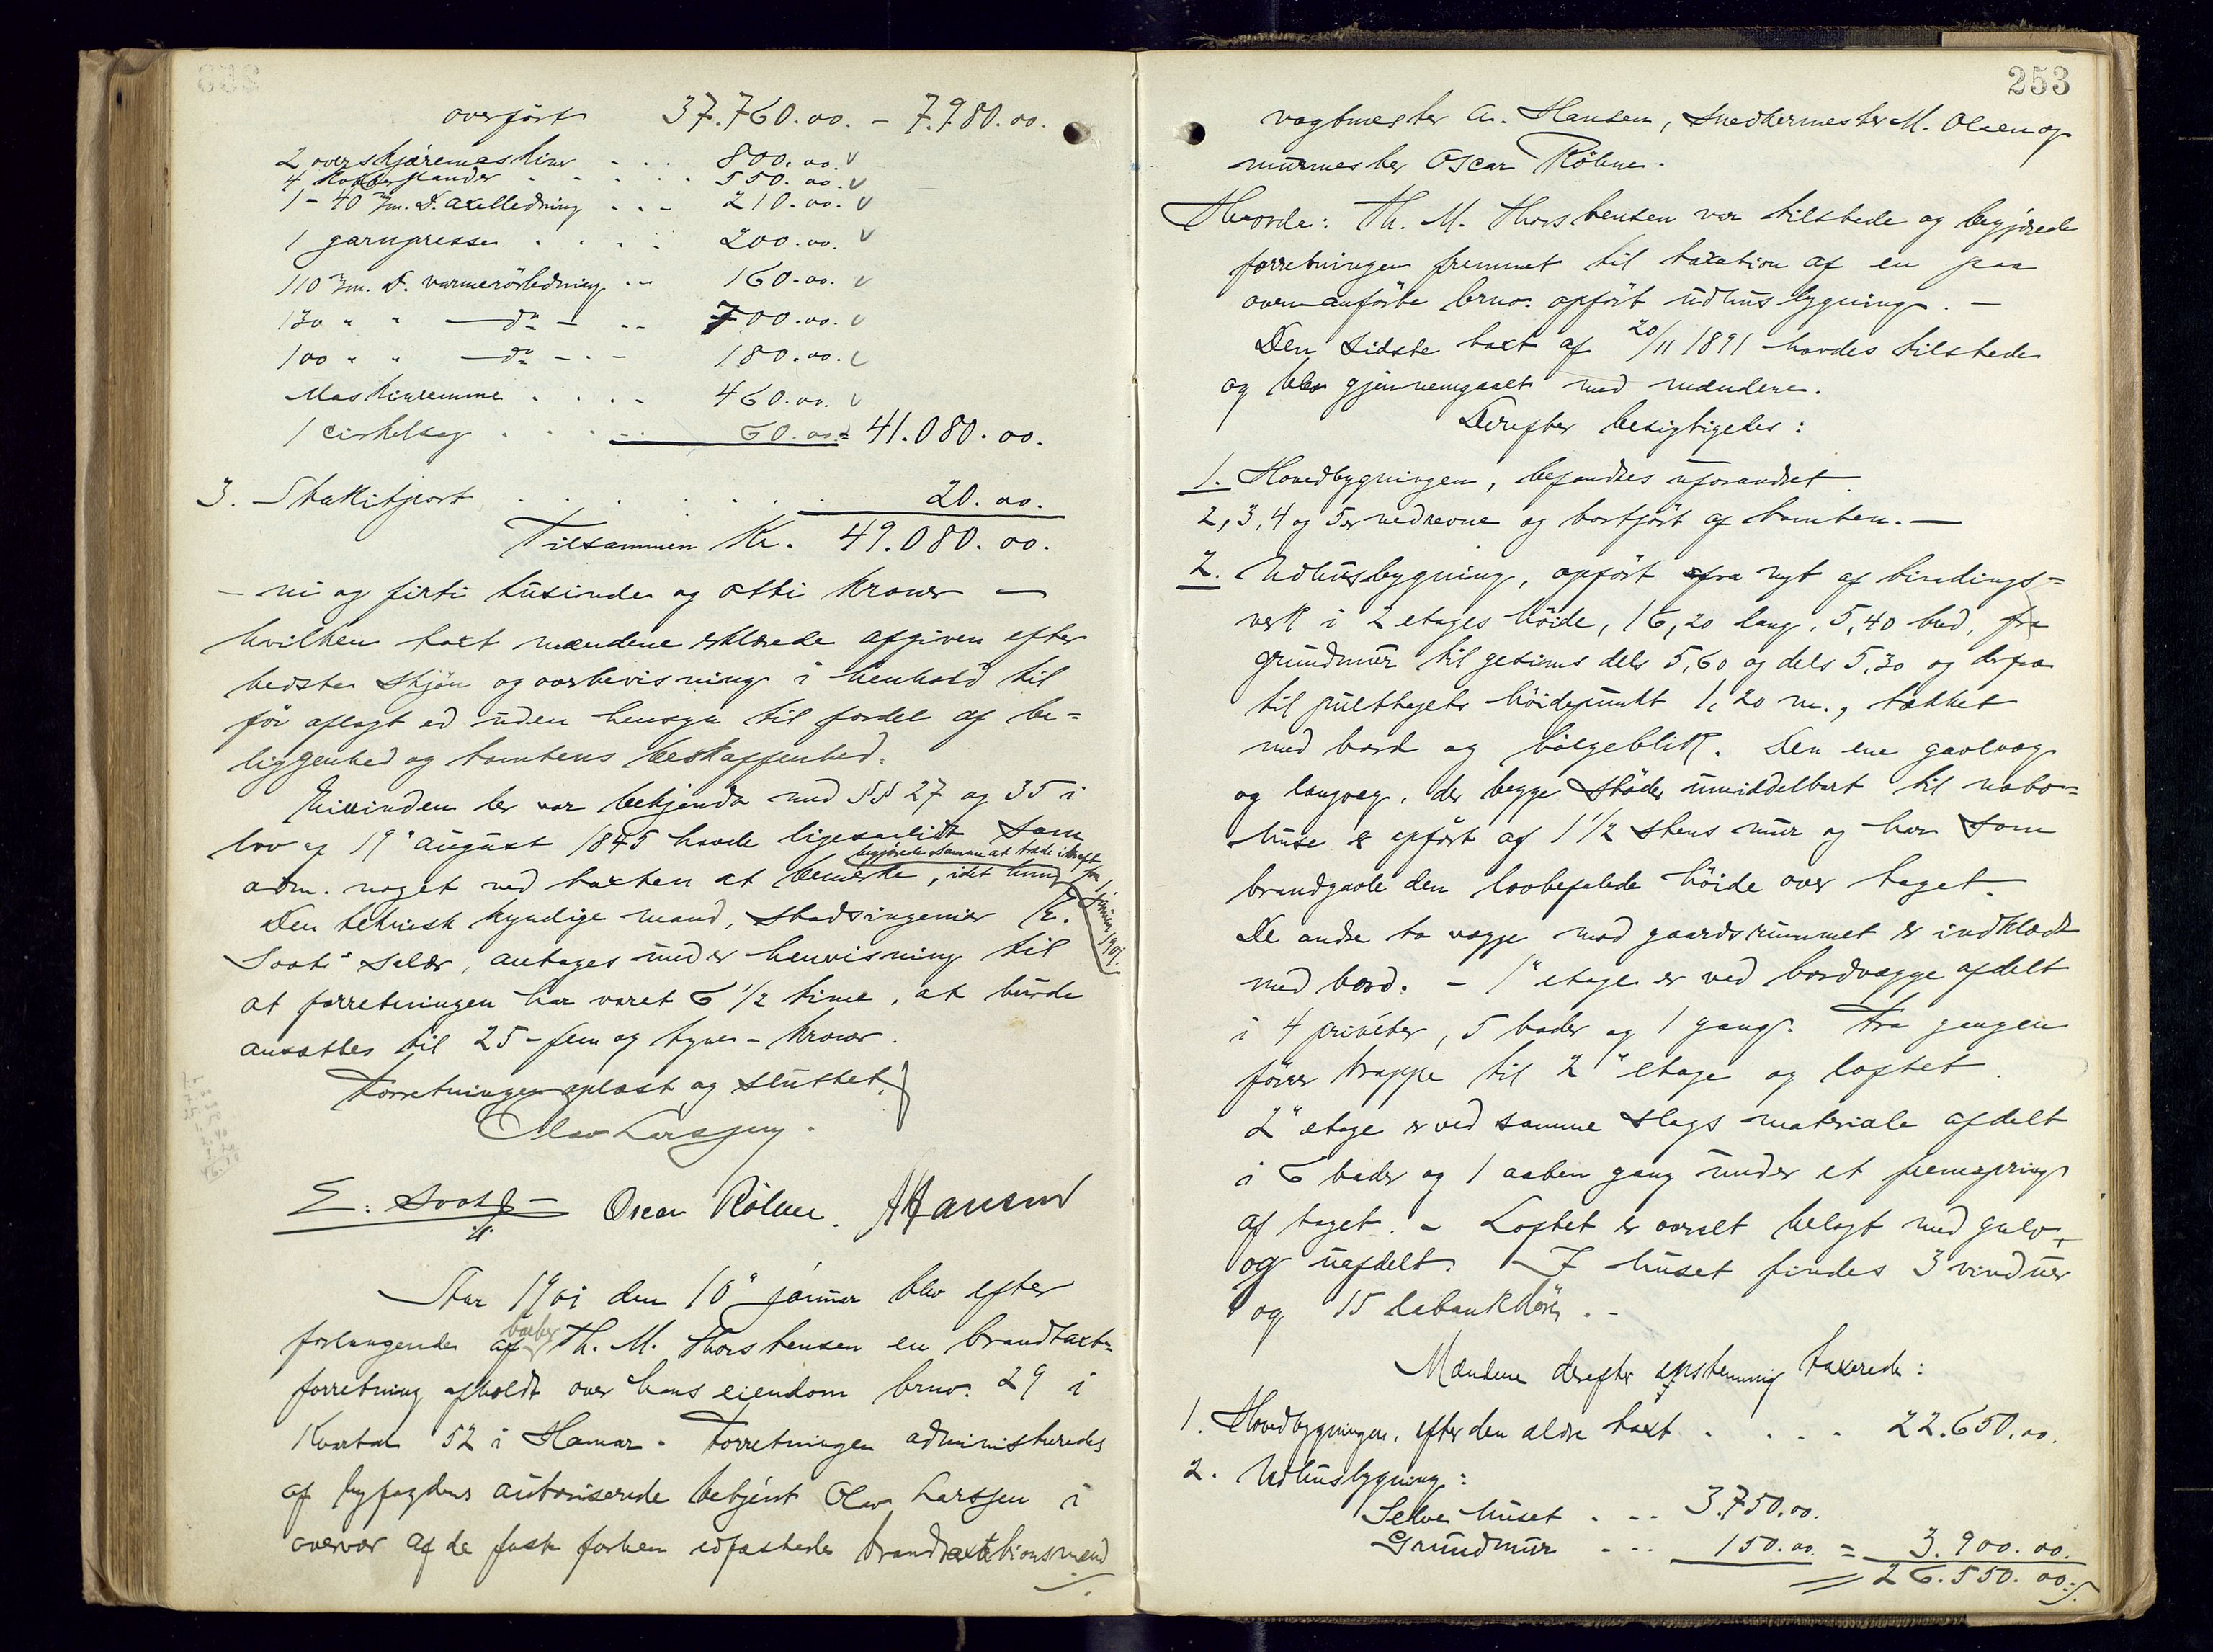 overført 37.760.00. - 7.980.00.
2 overskjæremaskiner . . . 800.00. v
4 Kobberpander . . . . . 550.00. v
1 - 40 m/m. D. axelledning . . . 210.00. v
1 garnpresse . . . . 200.00. v
110 m/m. D. varmerörledning . . 160.00. v
130 " " — do — . . 700.00. v
100 " " — do — . . 180.00. v
Maskinremme . . . . 460.00. v
1 cirkelsag . . . . . 60.00 = 41.080.00.
3. Stakitport . . . . . . . 20.00.
Tilsammen Kr. 49.080.00.
- ni og firti tusinde og otti kroner —
hvilken taxt mændene erklærede afgiven efter
bedste skjön og overbevisning i henhold til
för aflagt ed uden hensyn til fordel af be=
liggenhed og tomtens beskaffenhed.
Kvirinden ler var bekjendt med §§ 27 og 35 i
lov af 19" august 1845 havde ligesaalidt som
begjærede samme at træde i kraft
adm. noget ved taxten at bemerke, idet hun
fra 1 januar 1901.
Den teknisk kyndige mand, stadsingeniør E.
Svohs" salær, antages under henvisning til
at forretningen har varet 6 1/2 time, at burde
ansættes til 25 - fem og tyve - kroner.
Forretningen oplæst og sluttet.
Olav Larssen.
E. Svoh - Oscar Rölne. A Hansen
Aar 1901 den 10" januar blev efter
forlangende af bager Th. M. Thorstensen en brandtaxt=
forretning afholdt over hans eiendom brno. 29 i
Kvartal 52 i Hamar. Forretningen administreredes
af byfogdens autoriserede betjent Olav Larssen i
overvær af de faste forhen edfæstede brandtaxtationsmænd
253
vagtmester A. Hansen, snedkermester M. Olsen og
murmester Oscar Rölne.
Hvorda: Th. M. Thorstensen var tilstede og begjærede
forretningen fremmet til taxation af en paa
ovenanförte brno. opfört udhusbygning. —
Den sidste taxt af 20/11 1891 havdes tilstede
og blev gjennemgaaet med mændene.
Derefter besigtigedes:
1. Hovedbygningen, befandtes uforandret.
2, 3, 4 og 5 er nedrevne og bortfört af tomten. —
2. Udhusbygning, opfört fra nyt af bindings=
verk i 2 etages höide, 16,20 lang, 5,40 bred, fra
grundmur til gesims dels 5,60 og dels 5,30 og derfra
til pulttagets höidepunkt 1,20 m., tækket
med bord og bölgeblik. Den ene gavlvæg
og langvæg, der begge stöder umiddelbart til nabo=
huse er opfört af 1 1/2 stens mur og har som
brandgavle den lovbefalede höide over taget.
De andre to vægge mod gaardsrummet er indklædt
med bord. - 1" etage er ved bordvægge afdelt
i 4 priveter, 5 boder og 1 gang. Fra gangen
förer trappe til 2" etage og loftet.
2" etage er ved samme slags materiale afdelt
i 6 boder og 1 aaben gang under et fremspring
af taget. - Loftet er overalt belagt med gulv,
og uafdelt. - I huset findes 3 vinduer
og 15 labankdöre. -
Mændene derefter enstemmig taxerede:
1. Hovedbygningen, efter den ældre taxt . . . . 22.650.00.
2. Udhusbygning:
Selve huset . . . 3.750.00.
Grundmur . . . 150.00. = 3.900.00.
= 26.550.00.